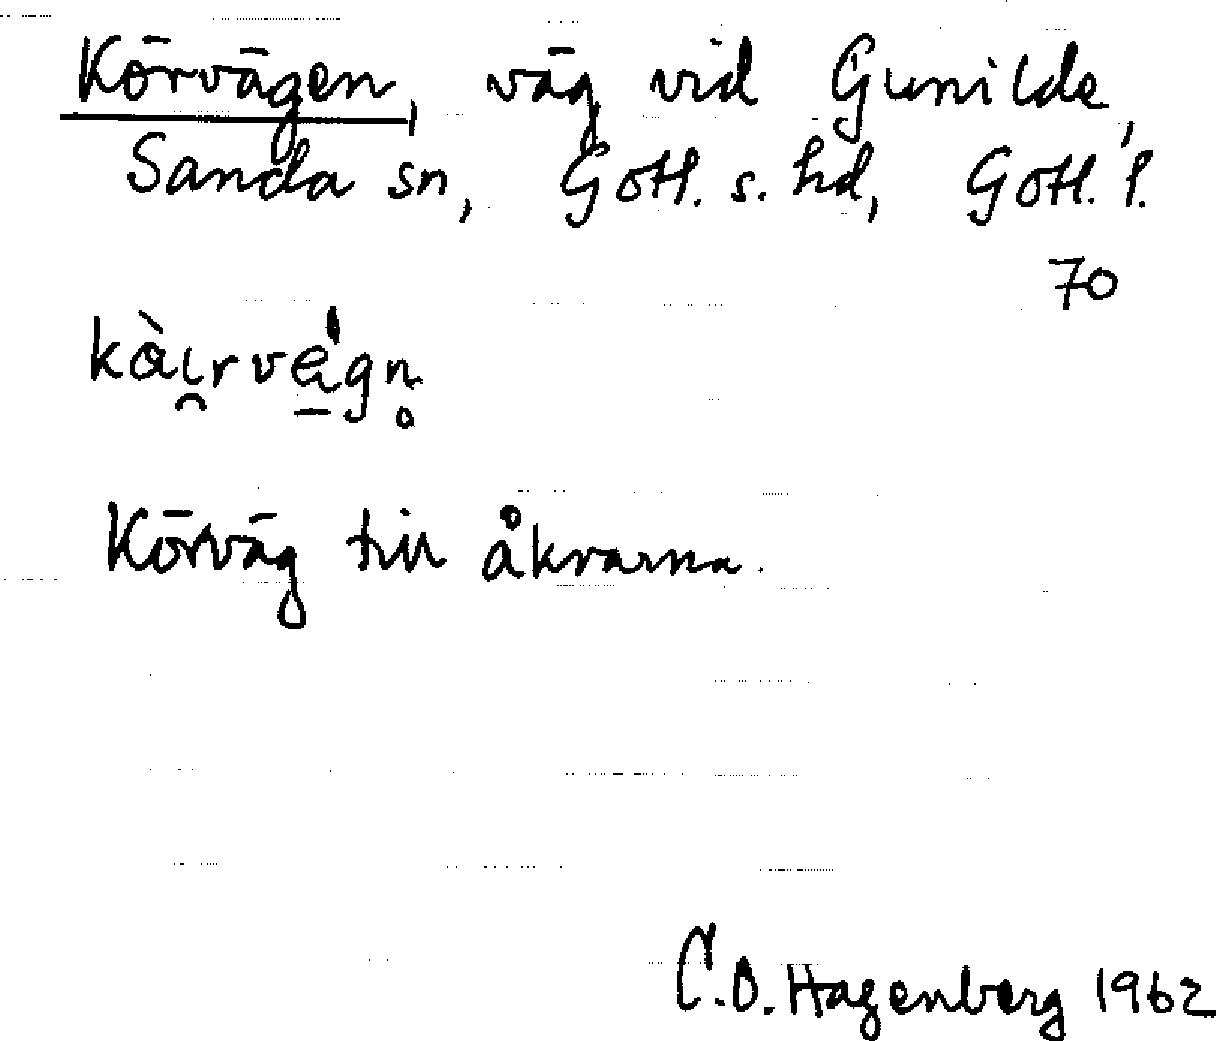 Körvägen, väg vid Gunilde,
Sanda sn, Gotl. s. hd, Gotl. l.
70
Körväg till åkrarna.
C.O. Hagenberg 1962